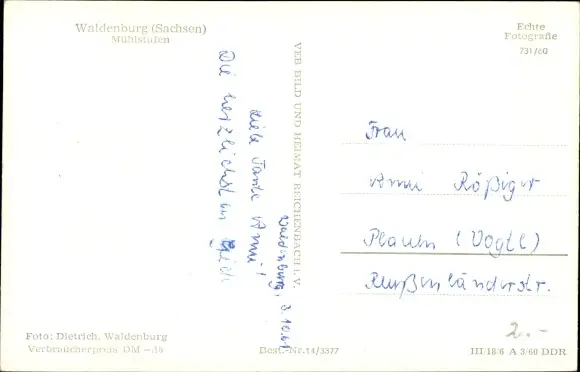 Waldenburg (Sachsen)
Mühlstufen
Echte
Fotografie
731/60
VEB BILD UND HEIMAT REICHENBACH I. V.
Waldenburg, 2.10.61
Liebe Tante Anni!
Die herzlichsten
Frau
Anni Rößiger
Plauen (Vogtl)
Reußenländerstr.
2.-
Foto: Dietrich, Waldenburg
Verbraucherpreis DM
Best.-Nr. 14/3377
III/18/6 A 3/60 DDR